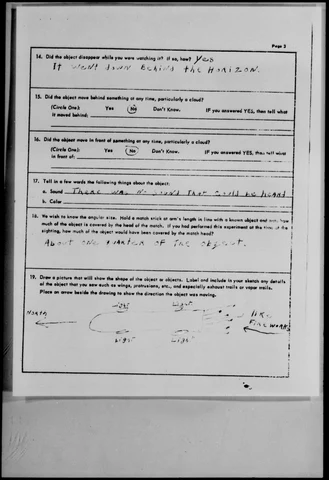 Page 3
14. Did the object disappear while you were watching it? If so, how? Yes
It went down behind the Horizon.
15. Did the object move behind something at any time, particularly a cloud?
(Circle One): Yes No Don't Know. IF you answered YES, then tell what
it moved behind:
16. Did the object move in front of something at any time, particularly a cloud?
(Circle One): Yes No Don't Know. IF you answered YES, then tell what
in front of:
17. Tell in a few words the following things about the object:
a. Sound There was no sound that could be heard
b. Color
18. We wish to know the angular size. Hold a match stick at arm's length in line with a known object and note how
much of the object is covered by the head of the match. If you had performed this experiment at the time of the
sighting, how much of the object would have been covered by the match head?
About one quarter of the object.
19. Draw a picture that will show the shape of the object or objects. Label and include in your sketch any details
of the object that you saw such as wings, protrusions, etc., and especially exhaust trails or vapor trails.
Place an arrow beside the drawing to show the direction the object was moving.
Light Light
North
like
fire works
Light Light